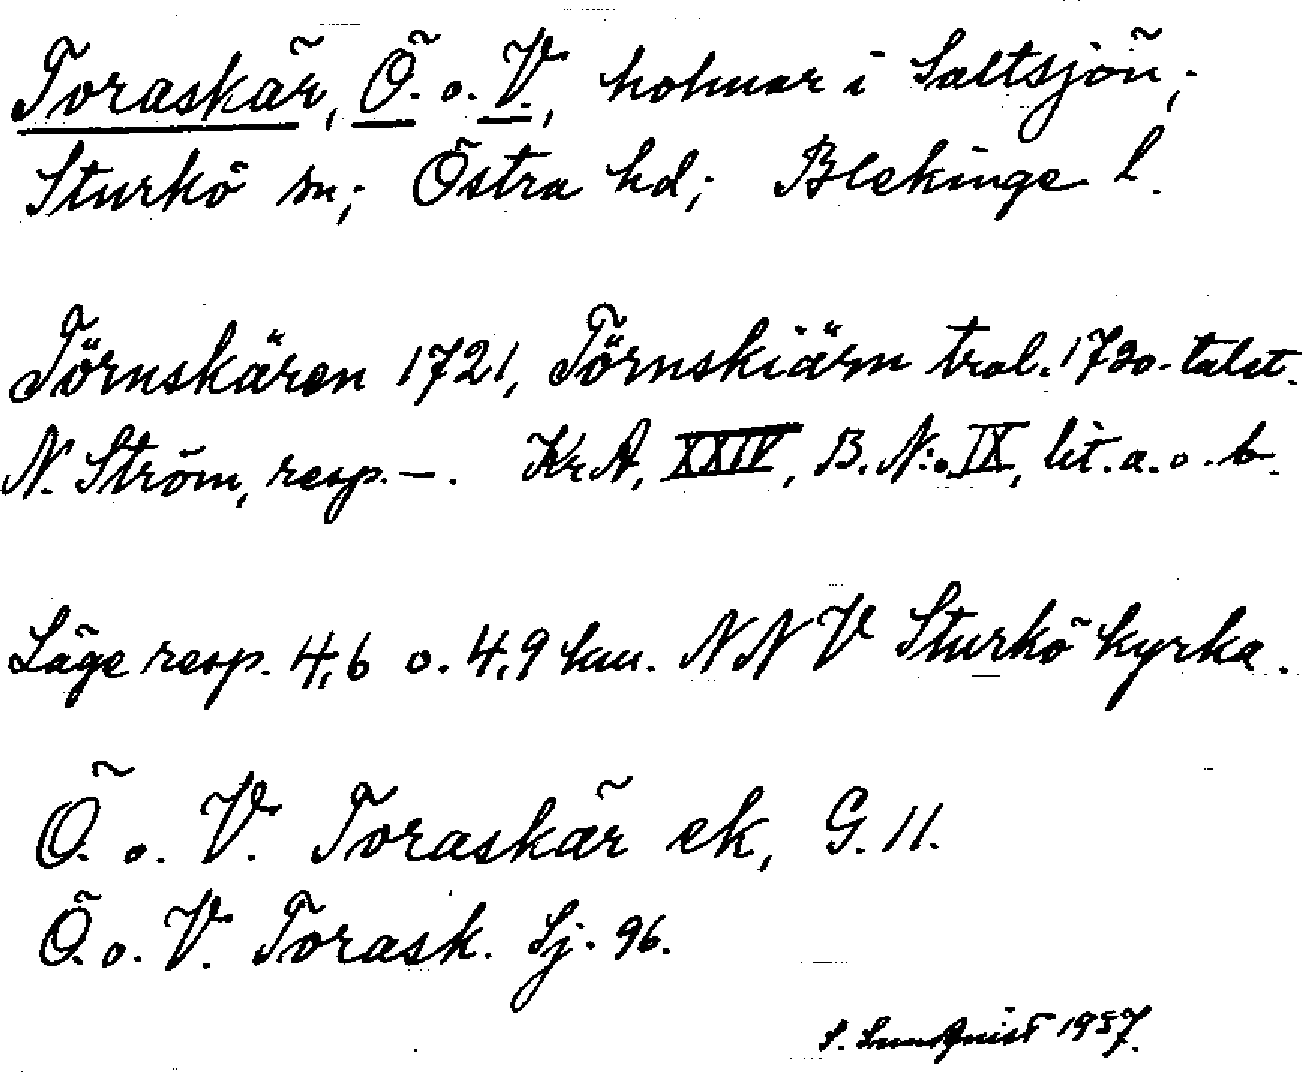 Toraskär, Ö. o. V., holmar i Saltsjön;
Sturkö sn; Östra hd; Blekinge l.
Törnskären 1721, Törnskiärn trol. 1720-talet.
N. Ström, resp. –. KrA, XXIV, B. N:o IX, lit. a. o. b.
Läge resp. 4,6 o. 4,9 km. NNV Sturkö kyrka.
Ö. o. V. Toraskär ek, G. 11.
Ö. o. V. Torask. Sj. 96.
S. Lundqvist 1957.